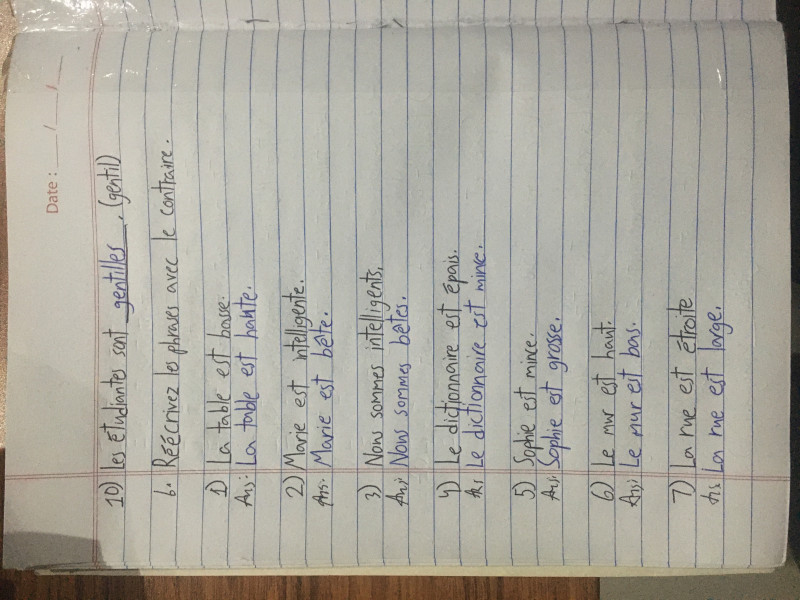 Date : __/__/__
10) Les étudiantes sont gentilles. (gentil)
b. Réécrivez les phrases avec le contraire.
1) La table est basse.
Ans: La table est haute.
2) Marie est intelligente.
Ans: Marie est bête.
3) Nous sommes intelligents.
Ans: Nous sommes bêtes.
4) Le dictionnaire est épais.
Ans Le dictionnaire est mince.
5) Sophie est mince.
Ans: Sophie est grosse.
6) Le mur est haut.
Ans: Le mur est bas.
7) La rue est étroite
Ans La rue est large.